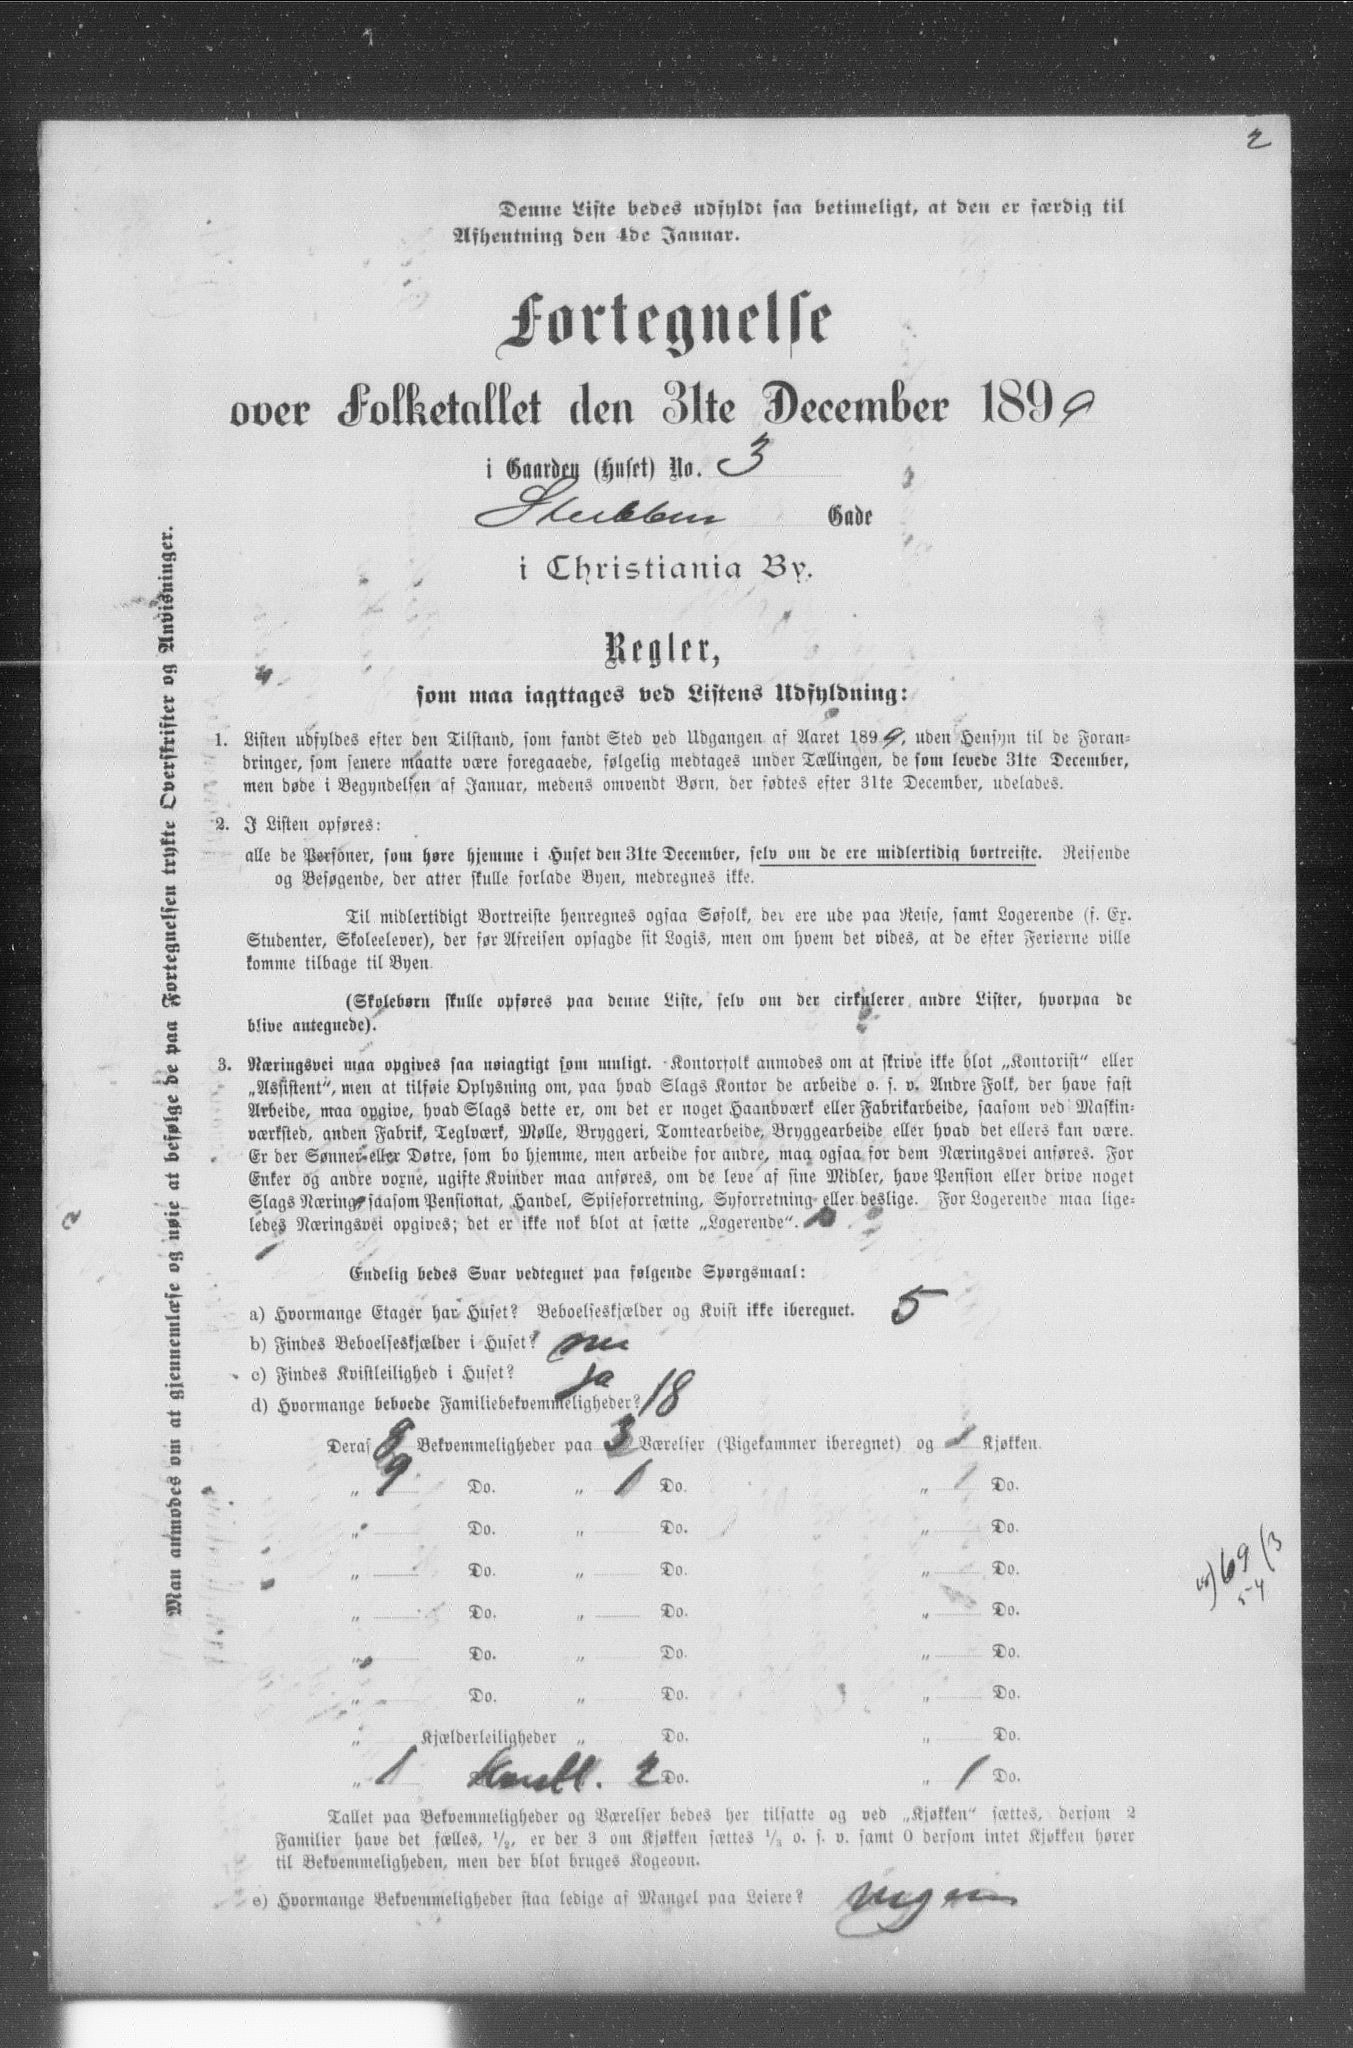 2
Denne Liste bedes udfyldt saa betimeligt, at den er færdig til
Afhentning den 4de Januar.
Fortegnelse
over Folketallet den 31te December 1899
i Gaarden (Huset) No. 3
Gade
i Christiania By.
Regler,
som maa iagttages ved Listens Udfyldning:
1. Listen udfyldes efter den Tilstand, som fandt Sted ved Udgangen af Aaret 1899, uden Hensyn til de Foran-
dringer, som senere maatte være foregaaede, følgelig medtages under Tællingen, de som levede 31te December,
men døde i Begyndelsen af Januar, medens omvendt Børn, der fødtes efter 31te December, udelades.
2. I Listen opføres:
alle de Personer, som høre hjemme i Huset den 31te December, selv om de ere midlertidig bortreiste. Reisende
og Besøgende, der atter skulle forlade Byen, medregnes ikke.
Til midlertidigt Bortreiste henregnes ogsaa Søfolk, der ere ude paa Reise, samt Logerende (f. Ex.
Studenter, Skoleelever), der før Afreisen opsagde sit Logis, men om hvem det vides, at de efter Ferierne ville
komme tilbage til Byen.
(Skolebørn skulle opføres paa denne Liste, selv om der cirkulerer andre Lister, hvorpaa de
blive antegnede).
3. Næringsvei maa opgives saa nøiagtigt som muligt. Kontorfolk anmodes om at skrive ikke blot „Kontorist“ eller
„Assistent“, men at tilføie Oplysning om, paa hvad Slags Kontor de arbeide o. s. v. Andre Folk, der have fast
Arbeide, maa opgive, hvad Slags dette er, om det er noget Haandværk eller Fabrikarbeide, saasom ved Maskin-
værksted, anden Fabrik, Teglværk, Mølle, Bryggeri, Tomtearbeide, Bryggearbeide eller hvad det ellers kan være.
Er der Sønner eller Døtre, som bo hjemme, men arbeide for andre, maa ogsaa for dem Næringsvei anføres. For
Enker og andre voxne, ugifte Kvinder maa anføres, om de leve af sine Midler, have Pension eller drive noget
Slags Næring, saasom Pensionat, Handel, Spiseforretning, Syforretning eller deslige. For Logerende maa lige-
ledes Næringsvei opgives; det er ikke nok blot at sætte „Logerende“.
Endelig bedes Svar vedtegnet paa følgende Spørgsmaal:
a) Hvormange Etager har Huset? Beboelseskjælder og Kvist ikke iberegnet. 5
b) Findes Beboelseskjælder i Huset?
c) Findes Kvistleilighed i Huset? Ja
d) Hvormange beboede Familiebekvemmeligheder? 18
Deraf 8 Bekvemmeligheder paa 3 Værelser (Pigekammer iberegnet) og 1 Kjøkken.
„ 9 Do. „ 1 Do. „ 1 Do.
„ Do. „ Do. „ Do.
„ Do. „ Do. „ Do.
„ Do. „ Do. „ Do.
„ Do. „ Do. „ Do.
„ Do. „ Do. „ Do.
„ Kjælderleiligheder „ Do. „ Do.
„ 1 2 Do. „ 1 Do.
Tallet paa Bekvemmeligheder og Værelser bedes her tilsatte og ved „Kjøkken“ sættes, dersom 2
Familier have det fælles, 1/2, er der 3 om Kjøkken sættes 1/3 o. s. v. samt 0 dersom intet Kjøkken hører
til Bekvemmeligheden, men der blot bruges Kogeovn.
e) Hvormange Bekvemmeligheder staa ledige af Mangel paa Leiere? Ingen
Man anmodes om at gjennemlæse og nøie at befølge de paa Fortegnelsen trykte Overskrifter og Anvisninger.